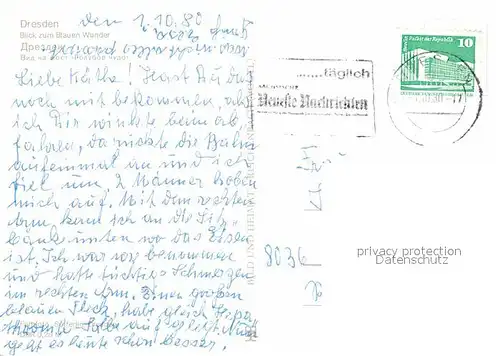 Dresden
Blick zum Blauen Wunder
den 1.10.80
Liebe Käthe! Hast Du das
noch mit bekommen, als
ich Dir winkte beim ab-
fahren, da rückte die Bahn
aufeinmal an und ich
fiel um, 2 Männer hoben
mich auf. Mit dem rechten
Arm, kam ich an die Sitz-
bänke unten wo das Eisen
ist. Ich war so benommen
und hatte tüchtige Schmerzen
im rechten Arm. Einen großen
blauen Fleck, habe gleich Hepa
thromb Salbe aufgelegt. Nun
geht es heute schon besser.
täglich
SÄCHSISCHE
Neueste Nachrichten
Palast der Republik
10
8036
privacy protection
Datenschutz